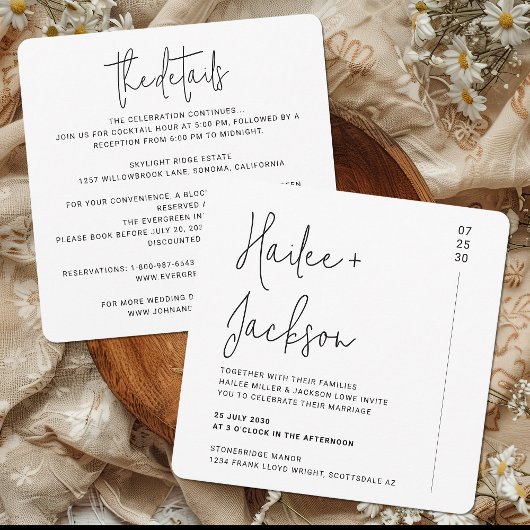 the details
THE CELEBRATION CONTINUES...
JOIN US FOR COCKTAIL HOUR AT 5:00 PM, FOLLOWED BY A
RECEPTION FROM 6:00 PM TO MIDNIGHT.
SKYLIGHT RIDGE ESTATE
1257 WILLOWBROOK LANE, SONOMA, CALIFORNIA
FOR YOUR CONVENIENCE, A
RESERVED
THE EVERGREEN
PLEASE BOOK BEFORE JULY 20,
DISCOUNTED
RESERVATIONS:
FOR MORE WEDDING
Hailee +
Jackson
07
25
30
TOGETHER WITH THEIR FAMILIES
HAILEE MILLER & JACKSON LOWE INVITE
YOU TO CELEBRATE THEIR MARRIAGE
25 JULY 2030
AT 3 O'CLOCK IN THE AFTERNOON
STONEBRIDGE MANOR
1234 FRANK LLOYD WRIGHT, SCOTTSDALE AZ